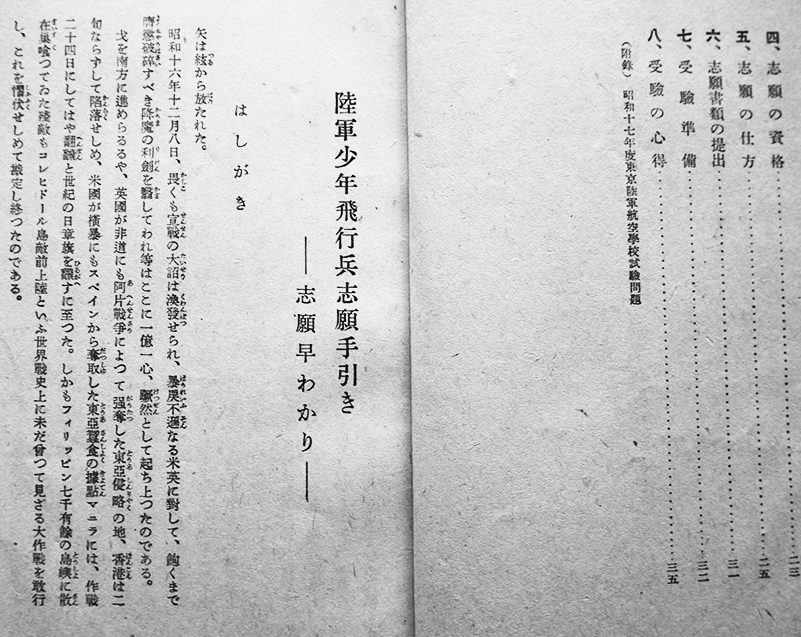 四、志願の資格……二三
五、志願の仕方……二五
六、志願書類の提出……三一
七、受驗準備……三二
八、受驗の心得……三五
(附錄) 昭和十七年度東京陸軍航空學校試驗問題
陸軍少年飛行兵志願手引き
――志願早わかり――
はしがき
矢は絃から放たれた。
昭和十六年十二月八日、畏くも宣戰の大詔は渙發せられ、暴戾不遜なる米英に對して、飽くまで
膺懲破碎すべき降魔の利劍を翳してわれ等はここに一億一心、蹶然として起ち上つたのである。
戈を南方に進めらるるや、英國が非道にも阿片戰爭によつて强奪した東亞侵略の地、香港は二
旬ならずして陷落せしめ、米國が橫暴にもスペインから奪取した東亞蠶食の據點マニラには、作戰
二十四日にしてはや翩飜と世紀の日章旗を飜すに至つた。しかもフィリッピン七千有餘の島嶼に散
在巢喰つてゐた殘敵もコレヒドール島敵前上陸といふ世界戰史上に未だ曾つて見ざる大作戰を敢行
し、これを慴伏せしめて勘定し終つたのである。